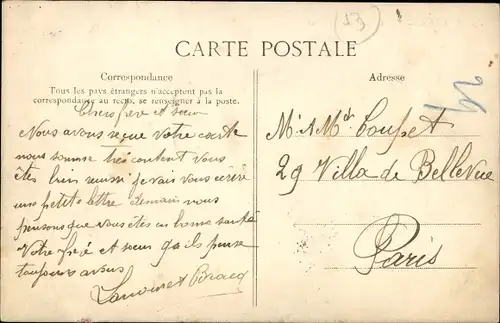 (53)
CARTE POSTALE
Correspondance
Tous les pays étrangers n'acceptent pas la
correspondance au recto, se renseigner à la poste.
Chers frère et sœur
Nous avons reçue votre carte
nous somme très content vous
êtes bien reussi je vais vous ecrire
une petite lettre demain nous
pensons que vous êtes en bonne santé
Votre frère et sœur qui pense
toujours a vous
Bracq
Adresse
M. & Mde Coupet
29 Villa de Bellevue
Paris